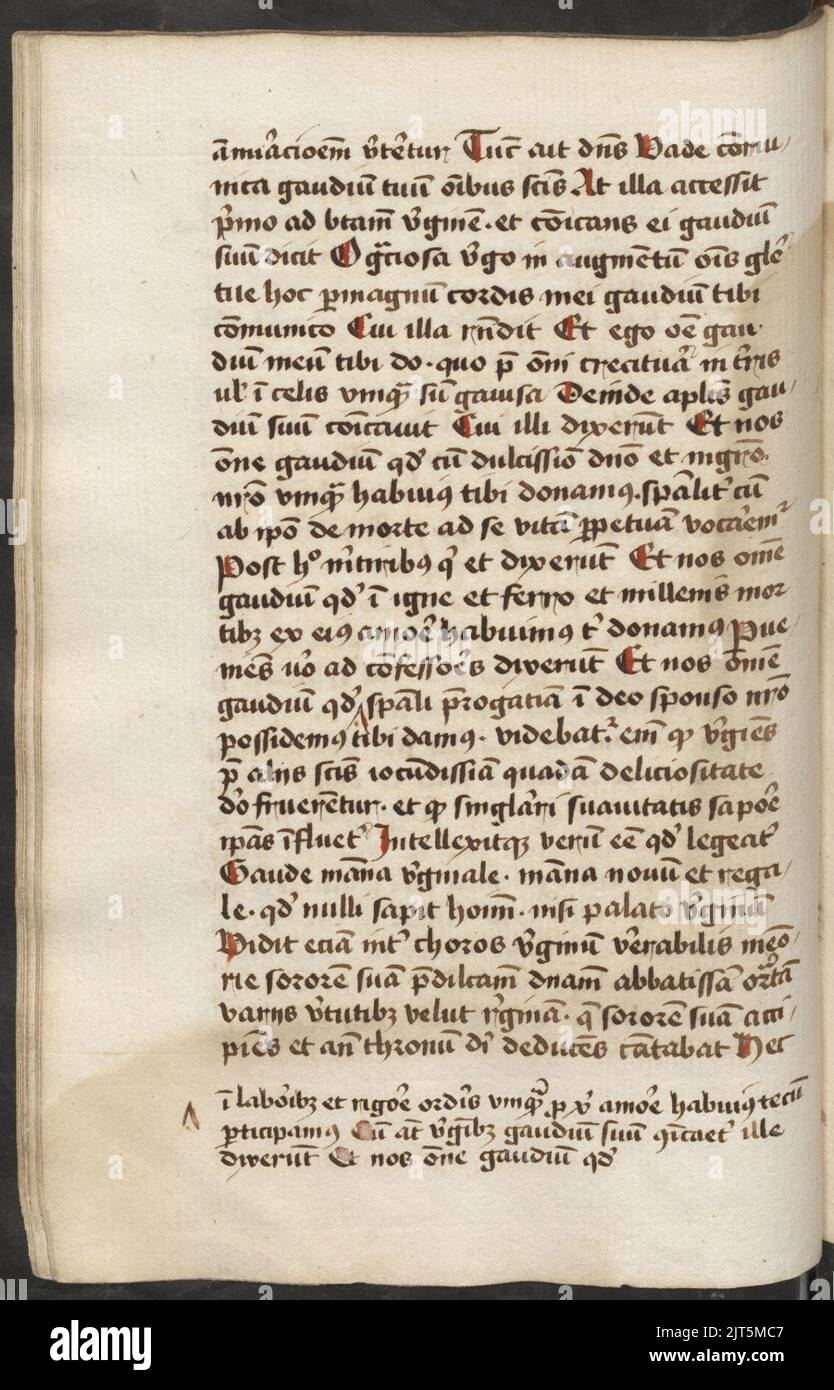 am̄irac̄ioēm vt̄etur Tūc ait dn̄s Vade cōmu
nica gaudiū tuū oībus sc̄is At illa accessit
p̄mo ad bt̄am v̄gīnē · et cōīcans ei gaudiū
suū dicit O gͣciosa v̄go in augmentū oīs gl̄e
tue hoc permagnū cordis mei gaudiū tibi
cōmunico Cui illa rn̄dit Et ego oē gau
diū meū tibi do · quo p̄ om̄i creatura in t̄ris
ul̓ ī celis vmqͣ sū gauisa Deinde apl̄is gau
diū suū cōīcauit Cui illi dixerūt Et nos
om̄e gaudiū qđ cū dulcissīo dn̄o et mgr̄o
nr̄o vmqͣ habuiꝰ tibi donamꝰ · sp̄alit̓ cū
ab ip̄o de morte ad se vitā ꝑpetuā vocarem̓
Post h° mr̄tiribꝰ qͥ et dixerūt Et nos om̄e
gaudiū qđ ī igne et ferro et millenis mor
tibꝫ ex eiꝰ amore habuimꝰ t̓ donamꝰ Pue
niēs v̓o ad cōfessores dixerūt Et nos om̄e
gaudiū qđ sp̄ali p̄rogatīa ī deo sponso nr̄o
possidemꝰ tibi damꝰ · videbat̓ em̄ qꝫ v̄gīes
p̄ alijs sc̄is iocūdissīa quadā deliciositate
do fruerētur · et qꝫ singl̄ari suauitatis sapore
ip̄as īfluet̓ Intellexitqꝫ verū eē qđ legeat̓
Gaude māna v̄gīnale · māna nouū et rega
le · qđ nulli sapit hoīm · nisi palato v̄gīnū
Vidit eciā int̓ choros v̄gīnū venerabilis meō
rie sororē suā p̄dilc̄am dn̄am abbatissā
varijs v̄tutibꝫ velut r̄gīnā · qͣ sororē suā acci
piēs et an̄ thronū dī deducēs cātabat Hec
ī laboribꝫ et rigore ordīs vmqͣ p xp̄ī amore habuiꝰ tecū
participamꝰ Cū at̄ v̄gībꝫ gaudiū suū 9īcaet̓ ille
dixerūt Et nos om̄e gaudiū qđ
alamy
Image ID: 2JT5MC7
www.alamy.com